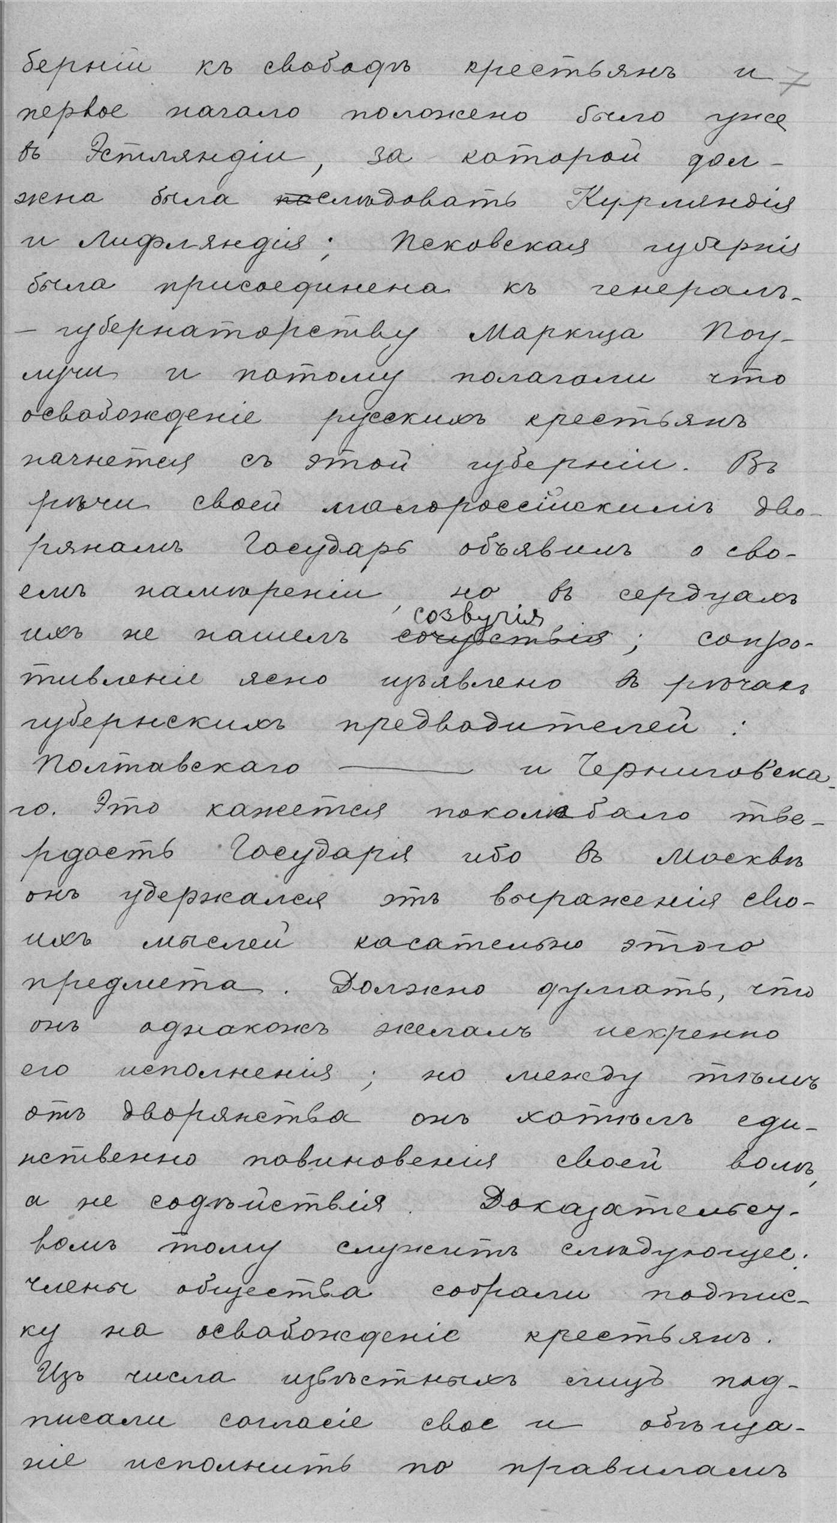 берніи къ свободѣ крестьянъ и 7
первое начало положено было уже
въ Эстляндіи, за которой дол-
жна была послѣдовать Курляндія
и Лифляндія; Псковская губернія
была присоединена къ генералъ-
-губернаторству Маркиза Поу-
лучи и потому полагали что
освобожденіе русскихъ крестьянъ
начнется съ этой губерніи. Въ
рѣчи своей малороссійскимъ дво-
рянамъ Государь объявилъ о сво-
емъ намѣреніи, но въ сердцахъ
созвучія
ихъ не нашелъ сочувствія; сопро-
тивленіе ясно изъявлено въ рѣчахъ
губернскихъ предводителей:
Полтавскаго ——— и Черниговска-
го. Это кажется поколебало тве-
рдость Государя ибо въ Москвѣ
онъ удержался отъ выраженія сво-
ихъ мыслей касательно этого
предмета. Должно думать, что
онъ однакожъ желалъ искренно
его исполненія; но между тѣмъ
отъ дворянства онъ хотѣлъ еди-
нственно повиновенія своей волѣ,
а не содѣйствія. Доказательст-
вомъ тому служитъ слѣдующее:
члены общества собрали подпис-
ку на освобожденіе крестьянъ.
Изъ числа извѣстныхъ лицъ под-
писали согласіе свое и обѣща-
ніе исполнить по правиламъ